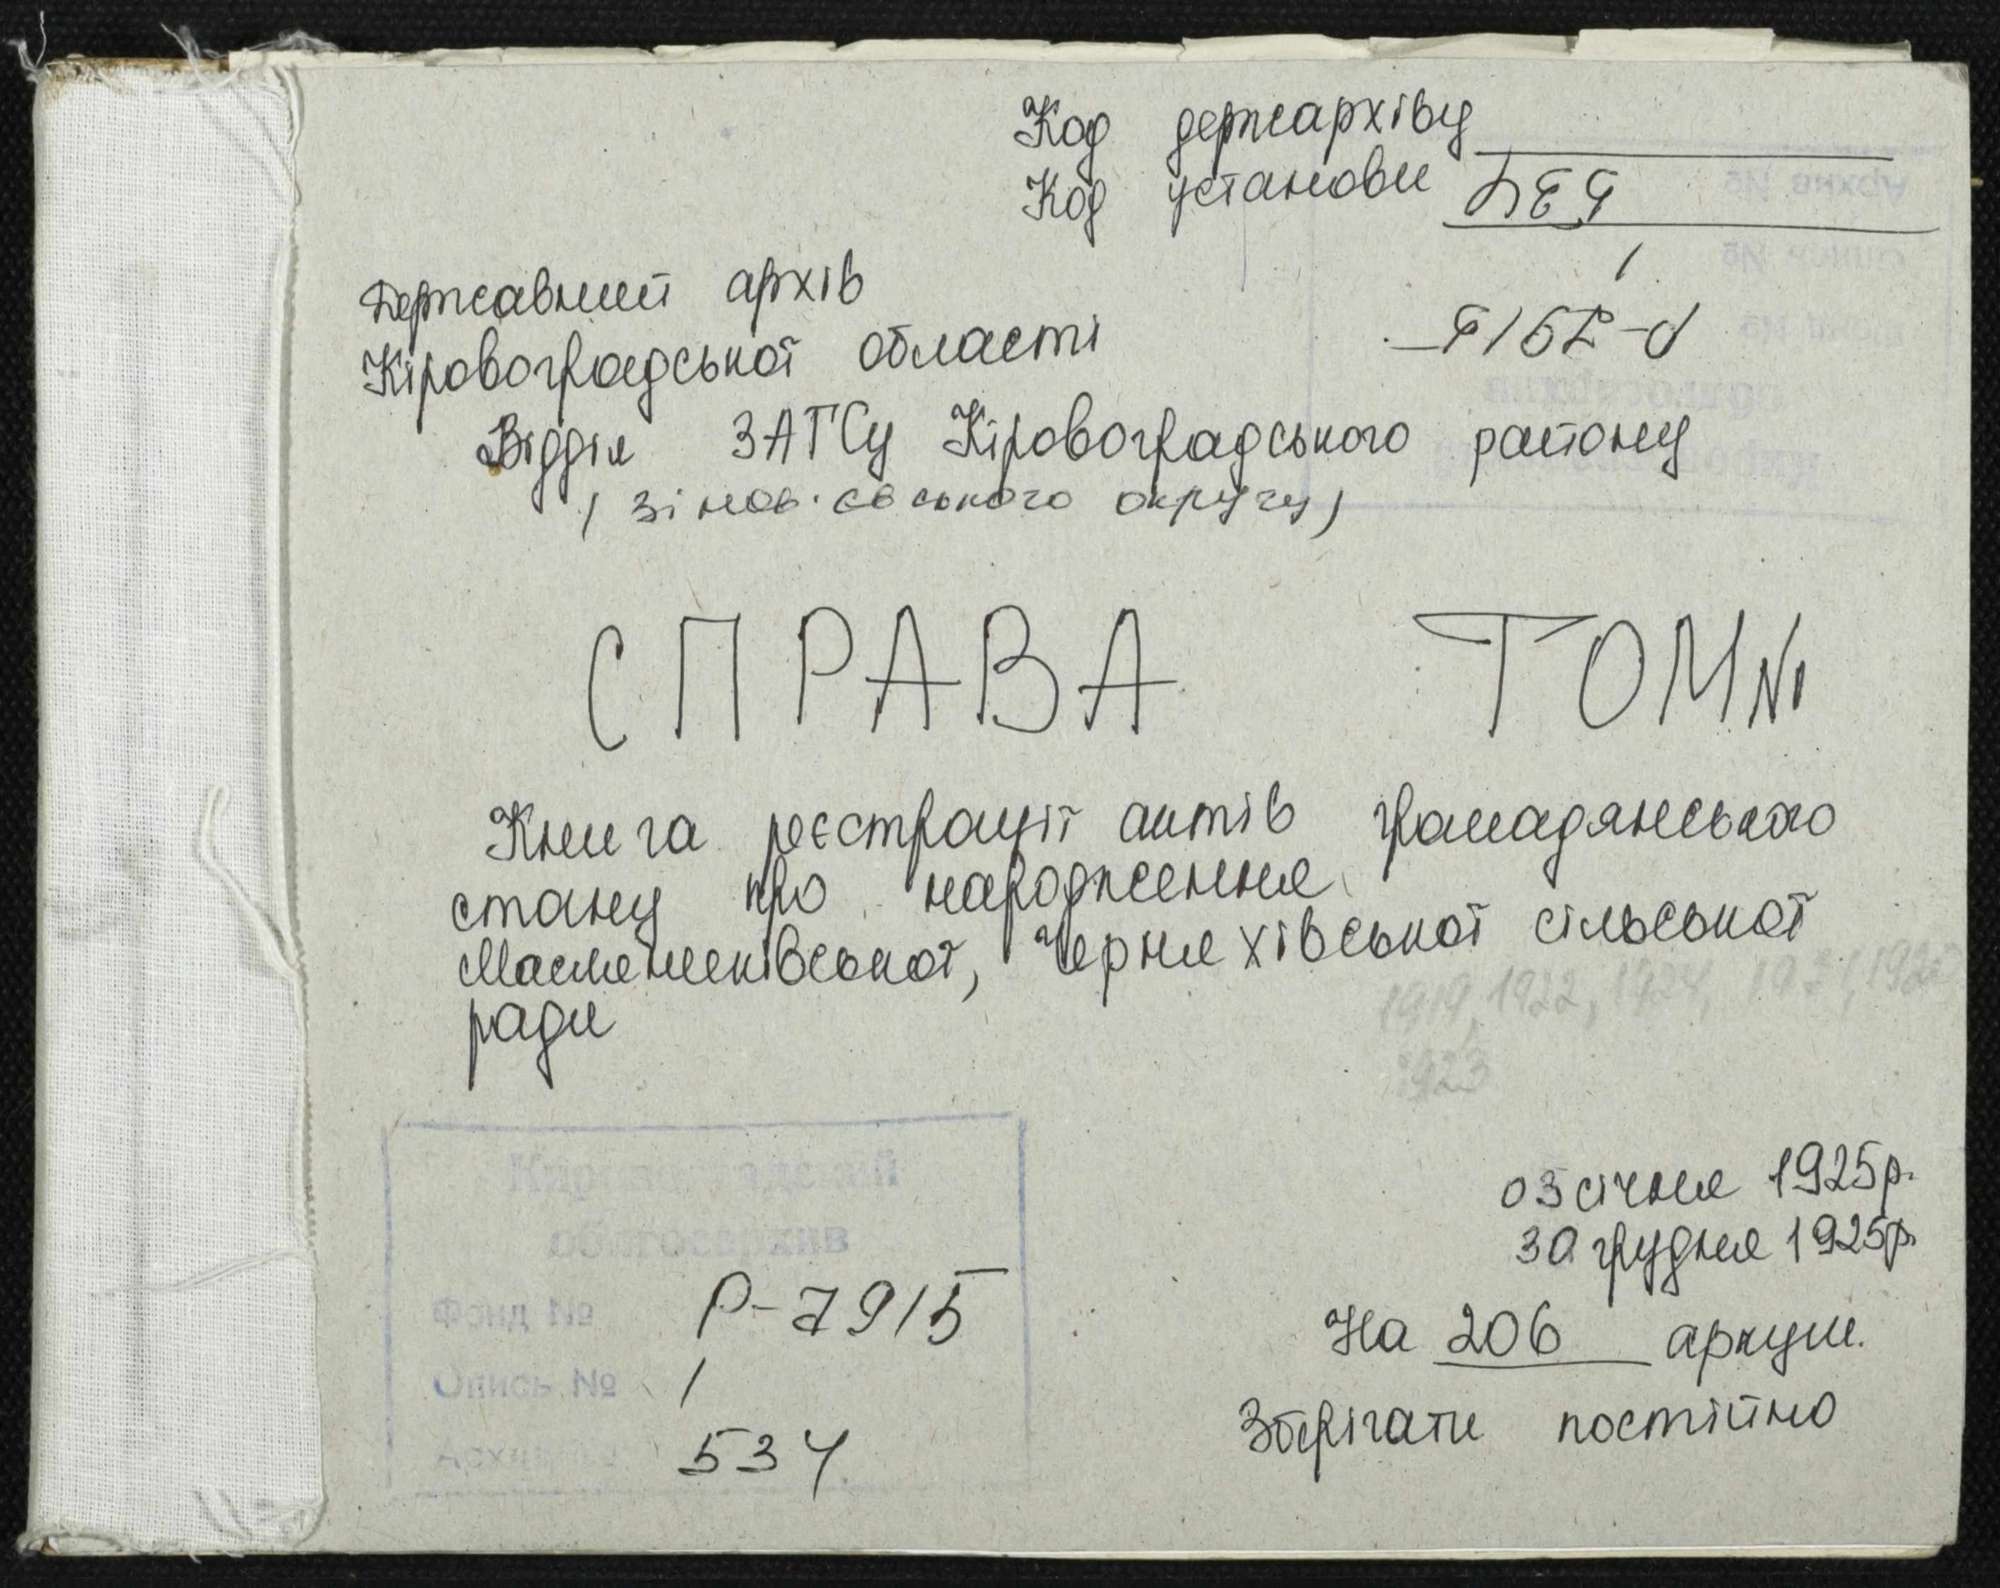 Код держархіву
Код установи
534
1
Р-7915
Державний архів
Кіровоградської області
Відділ ЗАГСу Кіровоградського району
(Зінов'євського округу)
СПРАВА ТОМ №1
Книга реєстрації актів громадянського
стану про народження
Масляниківської, Черняхівської сільської
ради
1919, 1922, 1924, 1921, 1920
1923
03 січня 1925р.
30 грудня 1925р.
На 206 аркуш.
Зберігати постійно
Кировоградский
облгосархив
Фонд № Р-7915
Опись № 1
Архив № 534